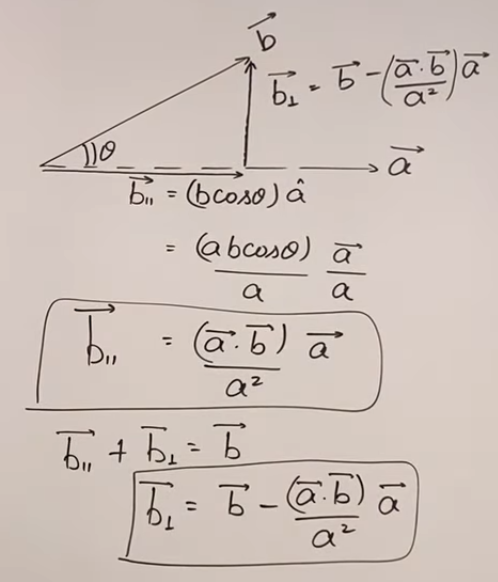 b⃗
b⃗⊥ = b⃗ - (a⃗·b⃗/a²) a⃗
θ
a⃗
b⃗∥ = (b cosθ) â
= (ab cosθ)/a a⃗/a
b⃗∥ = (a⃗·b⃗)/a² a⃗
b⃗∥ + b⃗⊥ = b⃗
b⃗⊥ = b⃗ - (a⃗·b⃗)/a² a⃗